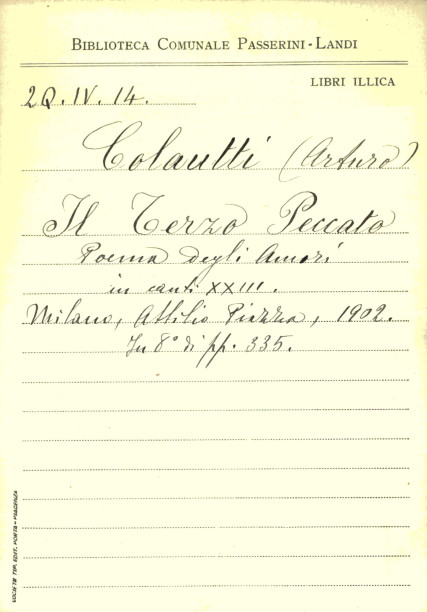 BIBLIOTECA COMUNALE PASSERINI-LANDI
LIBRI ILLICA
2Q.IV.14.
Colautti (Arturo)
Il Terzo Peccato
Poema degli Amori
in canti XXIII.
Milano, Attilio Pizzza, 1902.
In 8° di pp. 335.
SOCIETÀ TIP. EDIT. PORTA - PIACENZA